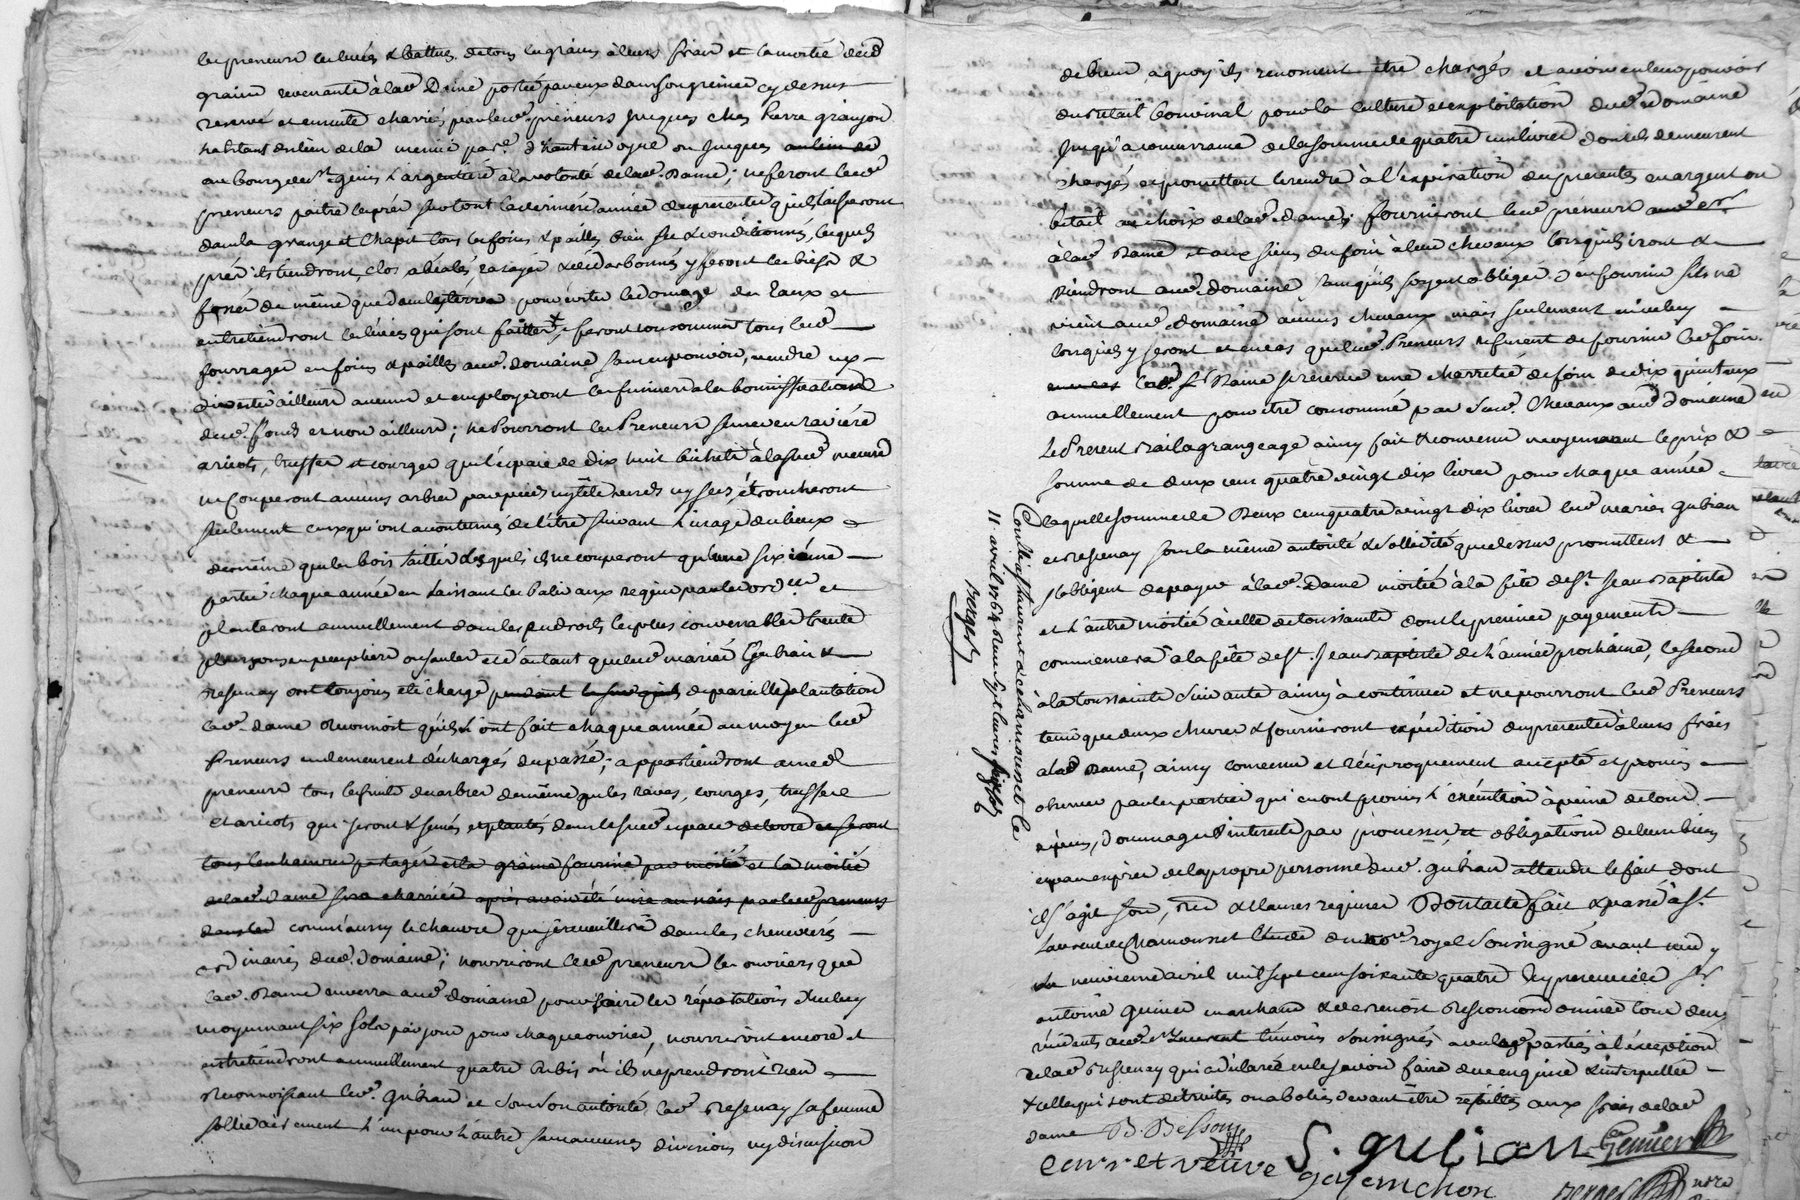 les preneurs les levées & battues de tous les grains à leurs frais et la moitié desd
grains revenante à lad Dame portée par eux dans son grenier cy dessus
reservé et ensuitte charriés par lesd. preneurs jusques ches Pierre granjon
habitant du lieu de la même par. d'hauterivoyre ou jusques au lieu de
au bourg de St. genis L'argentière à la volonté de lad. Dame; ne feront lesd
preneurs paitre les prés surtout la dernière année des presentes qu'ils laisseront
dans la grange et chapit tous les foins & pailles bien sec & conditionnés, lesquels
prés ils tiendront clos
fossés de même que dans les terres pour éviter le domage des eaux et
entretiendront les levées qui sont faittes, feront consommer tous lesd
fourrages en foins & pailles aud. domaine sans en pouvoir vendre ny
divertir ailleurs aucuns et employeront les fumiers à la bonniffication
dud. fond et non ailleurs; ne Pourront les Preneurs semer en ravière
aricots, truffes et courges que l'espace de dix huit bichets à la susd mesure
ne Couperont aucuns arbres par pieds ny tête verds ny secs, étroncheront
seulement ceux qui ont accoutumés de l'être suivant L'usage du lieu
de même que les bois taittés desquels ils ne couperont qu'une sixième
partie chaque année en Laissant les Palis aux regéns par les ord. et
planteront annuellement dans les endroits les plus convenables trente
plançons en peupliers ou saules et d'autant que lesd mariés Gubian &
Resenay ont toujours été chargé pendant de pareille plantation
lad. dame reconnoit qu'ils l'ont fait chaque année au moyen lesd
Preneurs en demeurent déchargés du passé; appartiendront auxd
preneurs tous les fruits des arbres de même que les raves, courges, truffes
et aricots qui seront & semés et plantés dans le susd espace de terre et seront
tous les chanvres partagés et la graine fournie par moitié et la moitié
de lad. dame sera charriée après avoir été mise au nais par lesd preneurs
dans les comm'aussy le chanvre qui se recueillira dans les chenevières
ordinaires dud. domaine; nourriront lesd preneurs les ouvriers que
lad. Dame enverra aud domaine pour faire les réparations d'iceluy
moyennant six sols par jour pour chaque ouvrier, nourriront encore et
entretiendront annuellement quatre brebis où ils ne prendront rien
Reconnoissant lesd. Gubian et de son autorité lad. Resenay sa femme
sollidairement L'un pour L'autre sans aucunes divisions ny discussion
de biens a quoy ils renoncent être chargés et avoir en leur pouvoir
du bétail bouvinal pour la culture et exploitation dud. Domaine
jusqu'à concurrance de la somme de quatre cent livres dont ils demeurent
chargés et promettent le rendre à l'expiration des presentes en argent ou
bétail au choix de lad. dame; fourniront lesd preneurs
à lad. Dame et aux siens du foin à leurs chevaux lorsqu'ils iront &
viendront aud. domaine sans qu'ils soyent obligés d'en fournir s'ils ne
vient aud. domaine aucuns chevaux mais seulement
lorsqu'ils y seront et en cas que lesd. Preneurs refusent de fournir led. foin
lad. Dame se reserve une charretée de foin de dix quintaux
annuellement pour être consommé par sesd. Chevaux aud domaine
Le Present Bail à grangeage ainsy fait & convenu moyennant le prix &
somme de deux cent quatre vingt dix livres pour chaque année
laquelle somme de Deux cent quatre vingt dix livres lesd mariés gubian
et resenay sous la même autorité & sollidité que dessus promettent &
s'obligent de payer à lad. Dame moitié à la fête de St. Jean Baptiste
et L'autre moitié à celle de toussaints dont le premier payement
commencera à la fête de St. Jean Baptiste de L'année prochaine, le second
à la toussaints suivante ainsy à continuer et ne pourront lesd Preneurs
tenir que deux chevres & fourniront expédition des presentes à leurs frais
à lad Dame, ainsy convenu et réciproquement accepté et promis
observer par les parties qui en ont promis L'exécution à peine de tous
dépens, dommages & interets par promesse et obligation de leurs biens
et par exprès de la propre personne dud. gubian attendu le fait dont
il s'agit son, ren & clauses requises Dont acte fait & passé à St.
Laurent de Chamousset Etude du No.re royal soussigné avant midy
le neuvieme avril mil sept cent soixante quatre En presence de Sr.
antoine guinier marchand & de benoit Resconiond tous deux
résidents aud. St Laurent témoins soussignés avec les parties à l'exception
de lad Resenay qui a déclaré ne le savoir faire de ce enquise & interpellée
& celles qui sont détruites ou abolies devant être refaittes aux frais de lad
dame B. Bessou
veuve gayemchon
S. gubian
Guinier
Berger
Conllé à St Laurent de chamousset le
11 avril 1764 Reçu
Berger